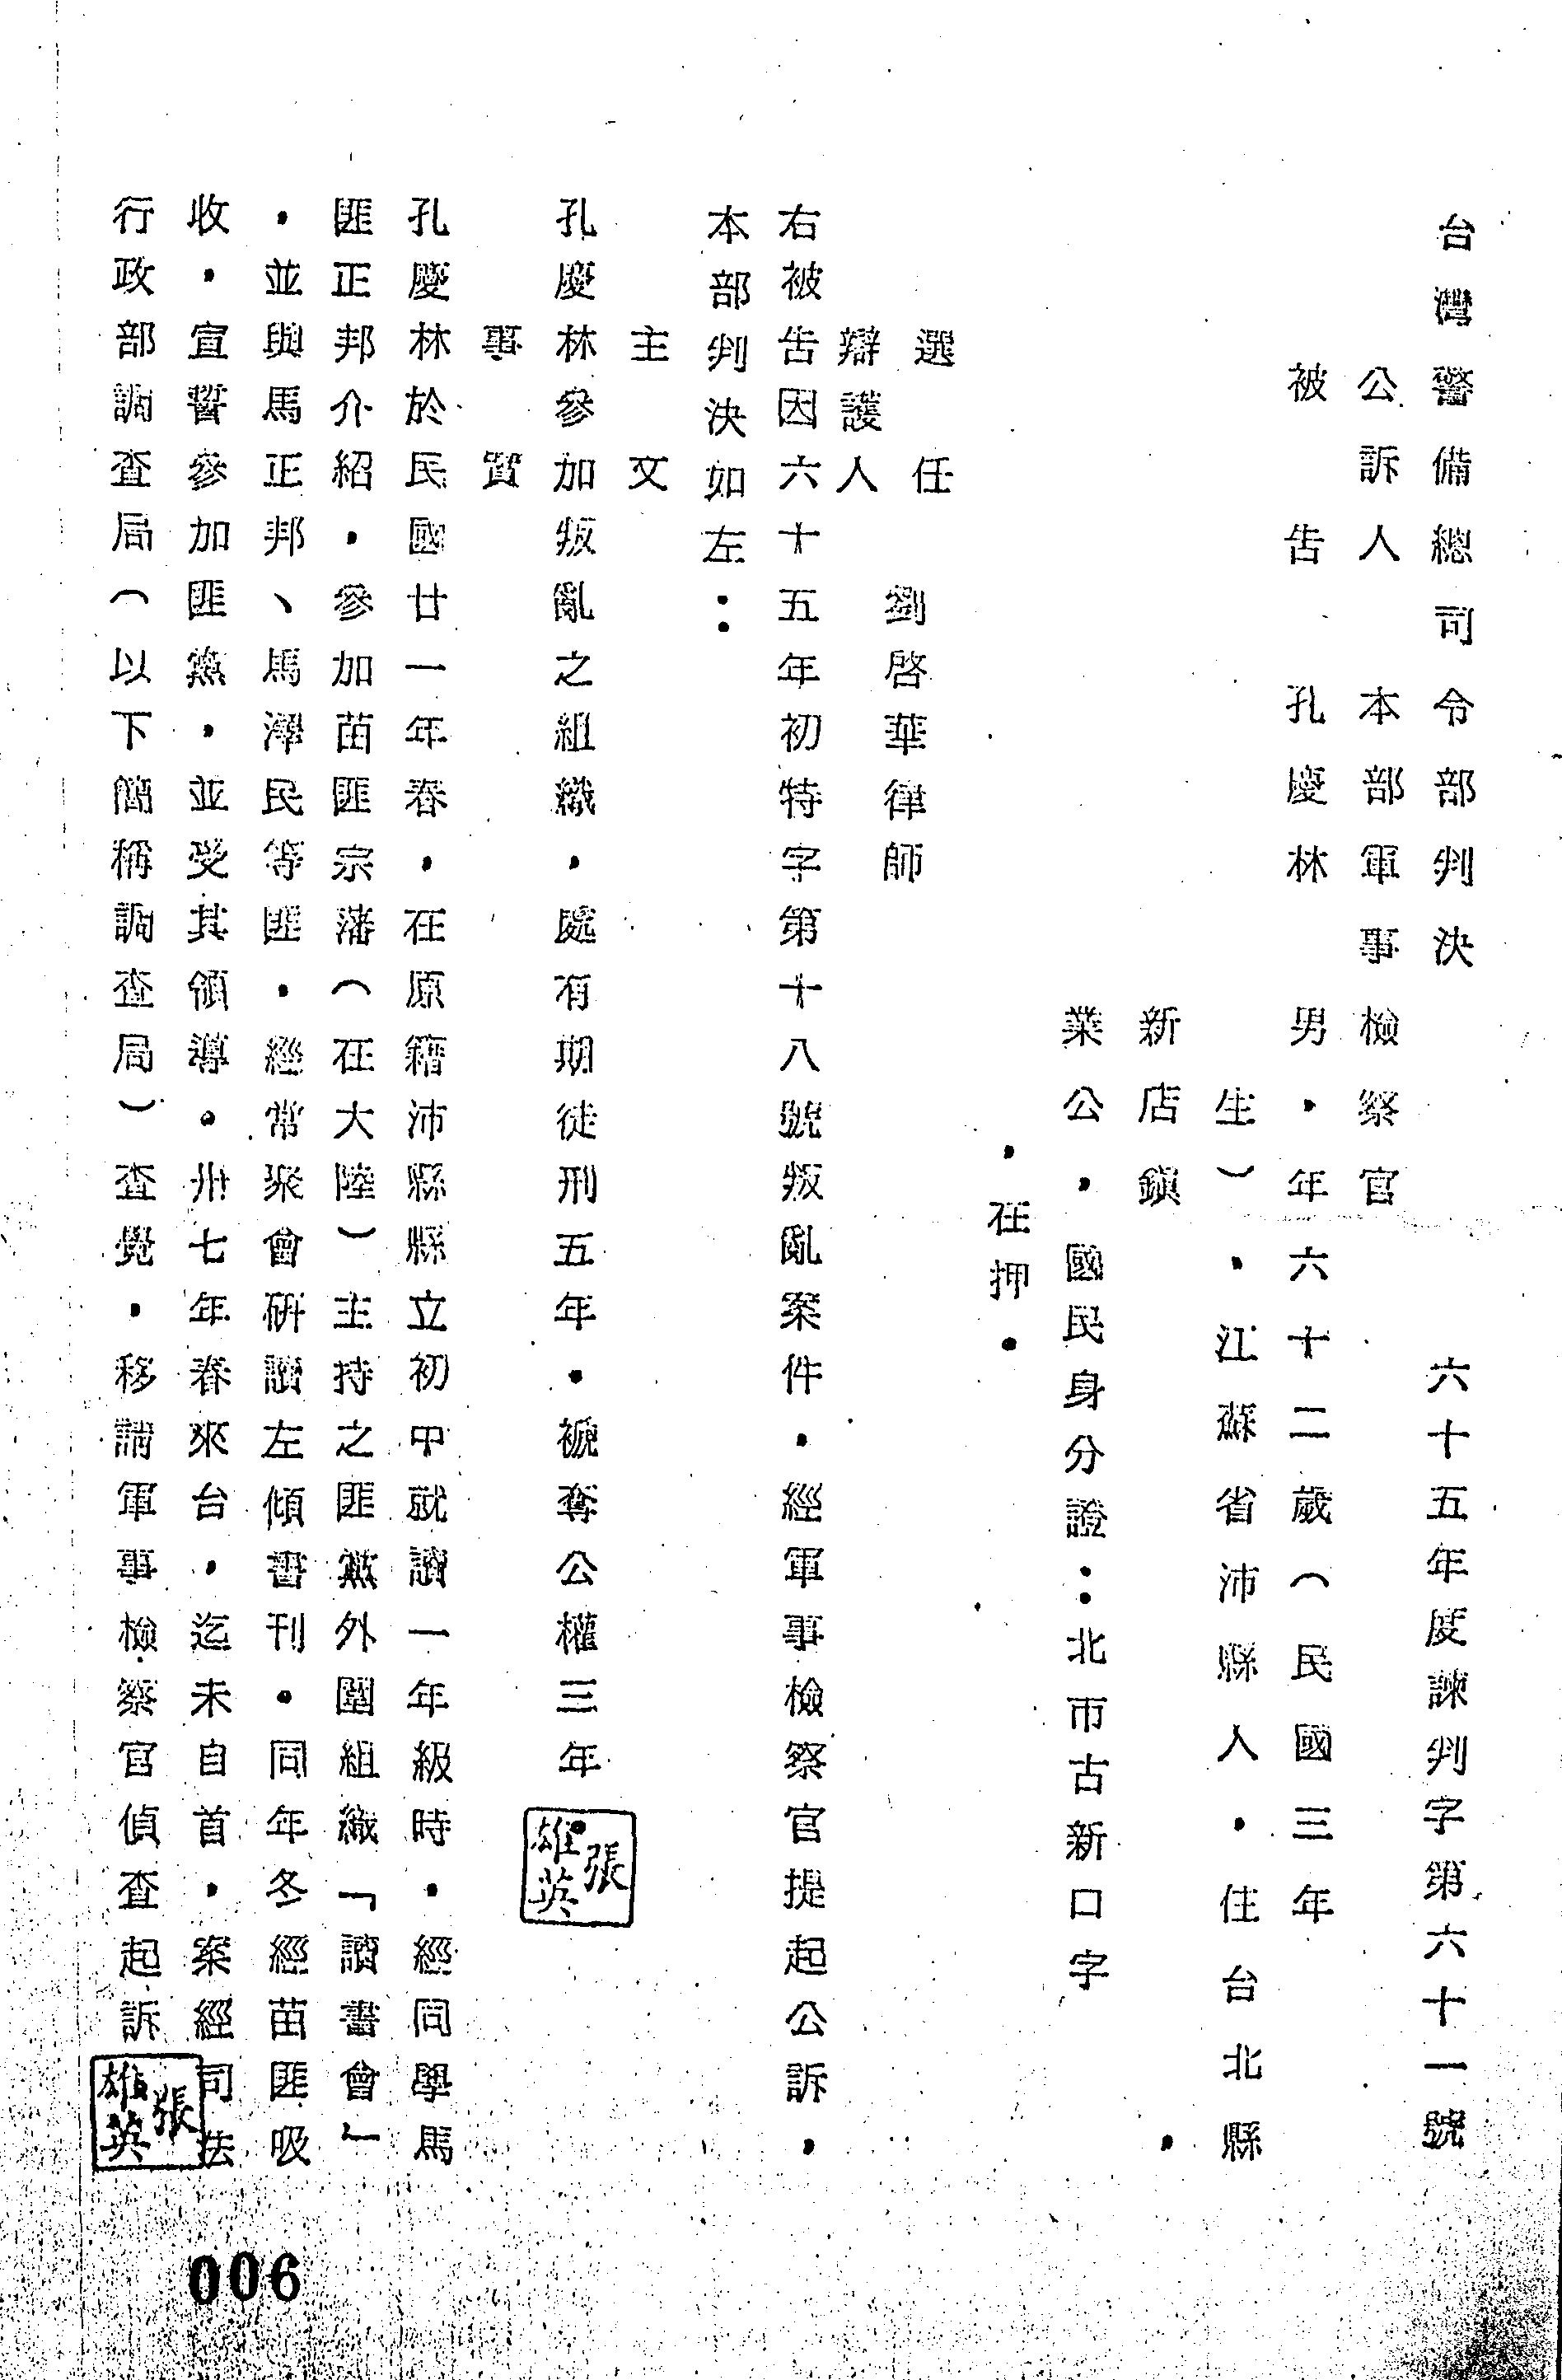 台灣警備總司令部判決
六十五年度諫判字第六十一號
公訴人 本部軍事檢察官
被告 孔慶林 男,年六十二歲(民國三年
生),江蘇省沛縣人,住台北縣
新店鎮 ,
業公,國民身分證:北市古新口字
,在押。
選任
辯護人 劉啓華律師
右被告因六十五年初特字第十八號叛亂案件,經軍事檢察官提起公訴,
本部判決如左:
主文
孔慶林參加叛亂之組織,處有期徒刑五年,褫奪公權三年。
張雄英
事實
孔慶林於民國廿一年春,在原籍沛縣縣立初中就讀一年級時,經同學馬
匪正邦介紹,參加苗匪宗藩(在大陸)主持之匪黨外圍組織「讀書會」
,並與馬正邦、馬澤民等匪,經常聚會研讀左傾書刊。同年冬經苗匪吸
收,宣誓參加匪黨,並受其領導。卅七年春來台,迄未自首,案經司法
行政部調查局(以下簡稱調查局)查覺,移請軍事檢察官偵查起訴
張雄英
006